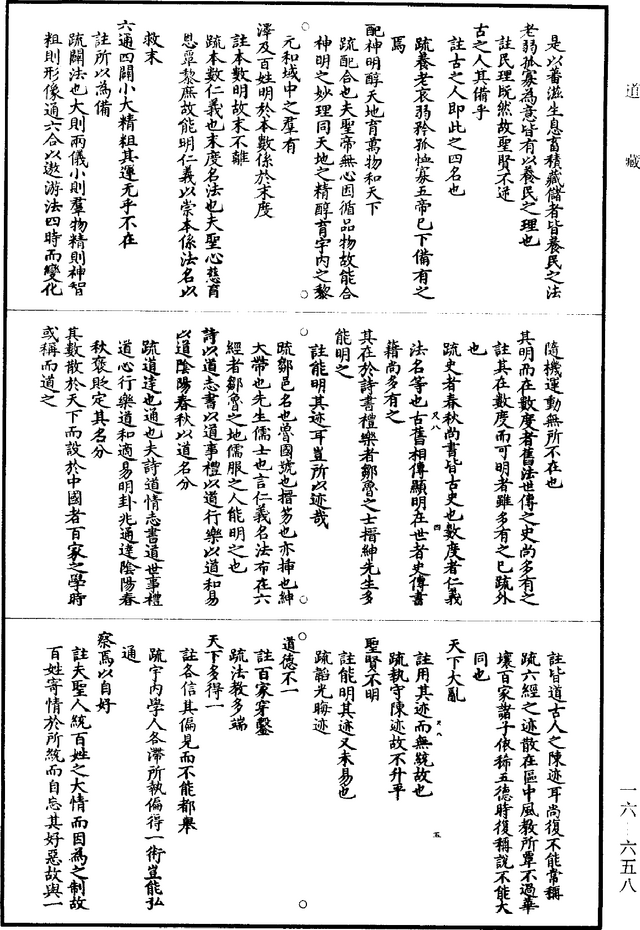 道藏
是以蕃滋生息畜積藏儲者皆養民之法
老弱孤寡為意皆有以養民之理也
註民理既然故聖賢不逆
古之人其備乎
註古之人即此之四名也
疏養老哀弱矜孤恤寡五帝已下備有之
焉
配神明醇天地育萬物和天下
疏配合也夫聖帝無心因循品物故能合
神明之妙理同天地之精醇育宇內之黎
元和域中之羣有
澤及百姓明於本數係於末度
註本數明故末不離
疏本數仁義也末度名法也夫聖心慈育
恩覃黎庶故能明仁義以崇本係法名以
救末
六通四闢小大精粗其運无乎不在
註所以為備
疏闢法也大則兩儀小則羣物精則神智
粗則形像通六合以遨游法四時而變化
隨機運動無所不在也
其明而在數度者舊法世傳之史尚多有之
註其在數度而可明者雖多有之已疏外
也
疏史者春秋尚書皆古史也數度者仁義
法名等也古舊相傳顯明在世者史傳書
籍尚多有之
其在於詩書禮樂者鄒魯之士搢紳先生多
能明之
註能明其迹耳豈所以迹哉
疏鄒邑名也魯國號也搢笏也亦插也紳
大帶也先生儒士也言仁義名法布在六
經者鄒魯之地儒服之人能明之也
詩以道志書以道事禮以道行樂以道和易
以道陰陽春秋以道名分
疏道達也通也夫詩道情志書道世事禮
道心行樂道和適易明卦兆通達陰陽春
秋褒貶定其名分
其數散於天下而設於中國者百家之學時
或稱而道之
註皆道古人之陳迹耳尚復不能常稱
疏六經之迹散在區中風教所覃不過華
壤百家諸子依稀五德時復稱說不能大
同也
天下大亂
註用其迹而無統故也
疏執守陳迹故不升平
聖賢不明
註能明其迹又未易也
疏韜光晦迹
道德不一
註百家穿鑿
疏法教多端
天下多得一
註各信其偏見而不能都舉
疏宇內學人各滯所執偏得一術豈能弘
通
察焉以自好
註夫聖人統百姓之大情而因為之制故
百姓寄情於所統而自忘其好惡故與一
一六-六五八